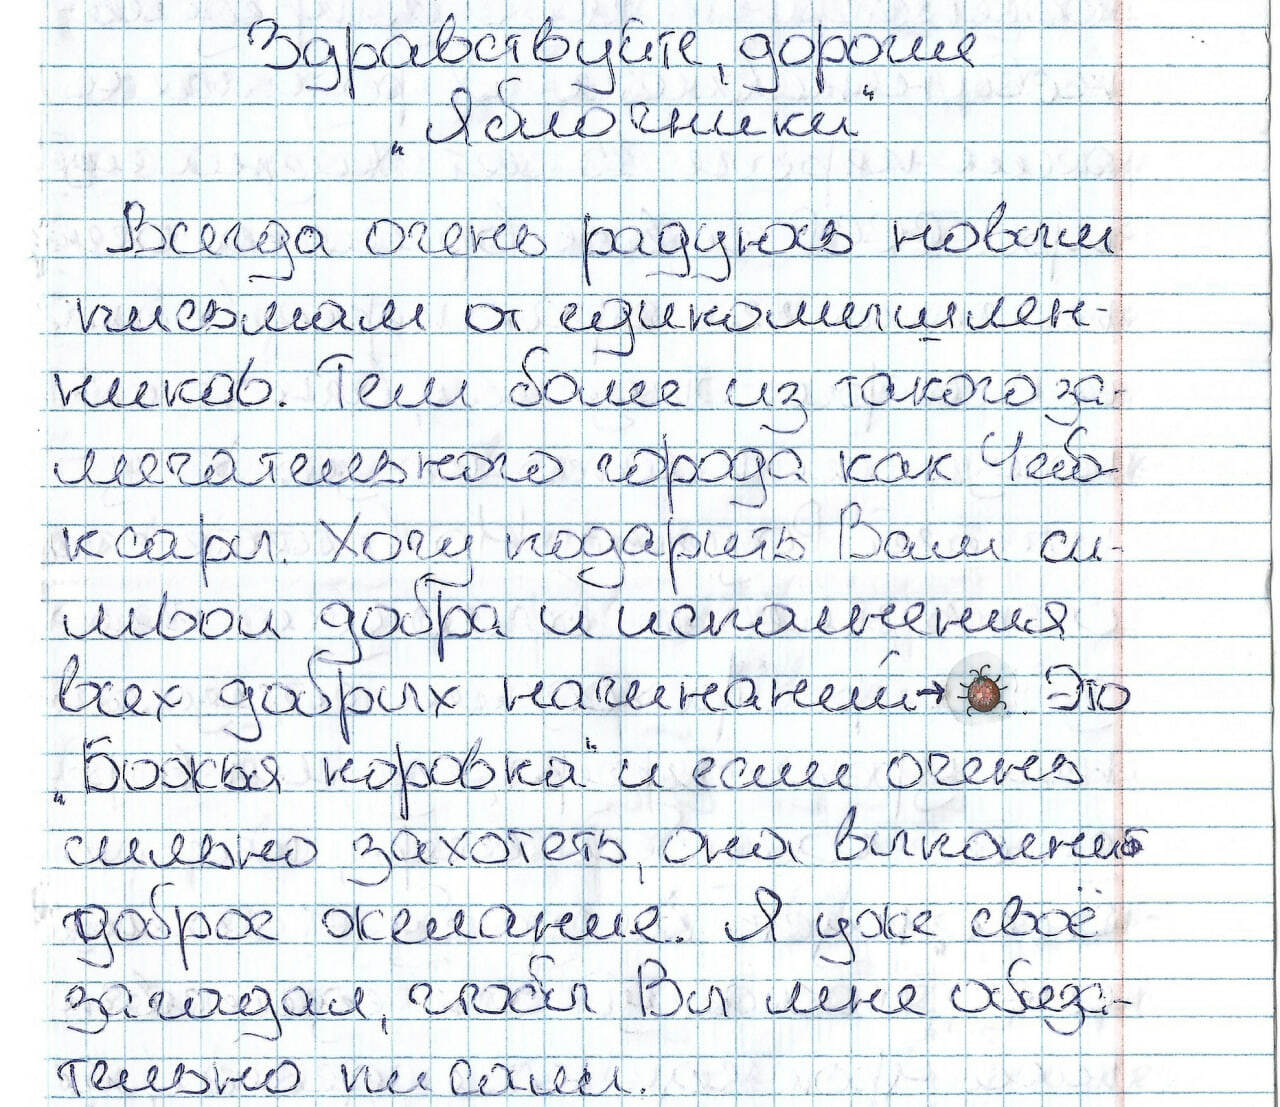 Здравствуйте, дорогие
„Яблочники"
Всегда очень радуюсь новым
письмам от единомышлен-
ников. Тем более из такого за-
мечательного города как Чебо-
ксары. Хочу подарить Вам си-
мвол добра и исполнения
всех добрых начинаний→ . Это
„Божья коровка" и если очень
сильно захотеть, она выполнит
доброе желание. Я уже своё
загадал, чтобы Вы мне обяза-
тельно писали.